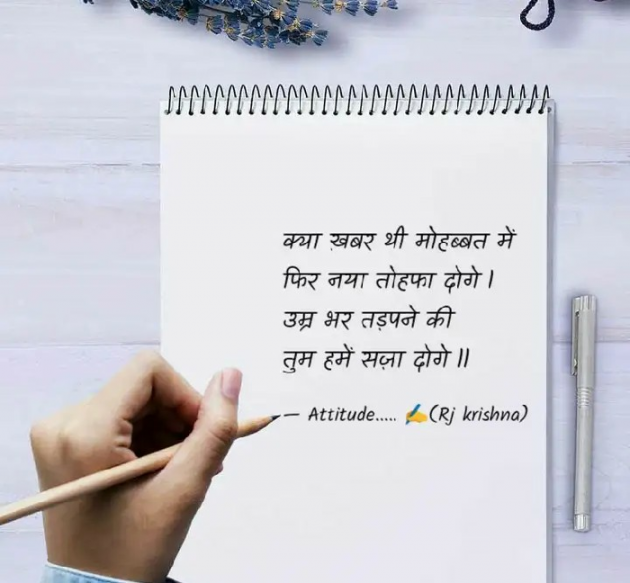 क्या ख़बर थी मोहब्बत में
फिर नया तोहफा दोगे ।
उम्र भर तड़पने की
तुम हमें सज़ा दोगे ॥
— Attitude..... ✍️(Rj krishna)